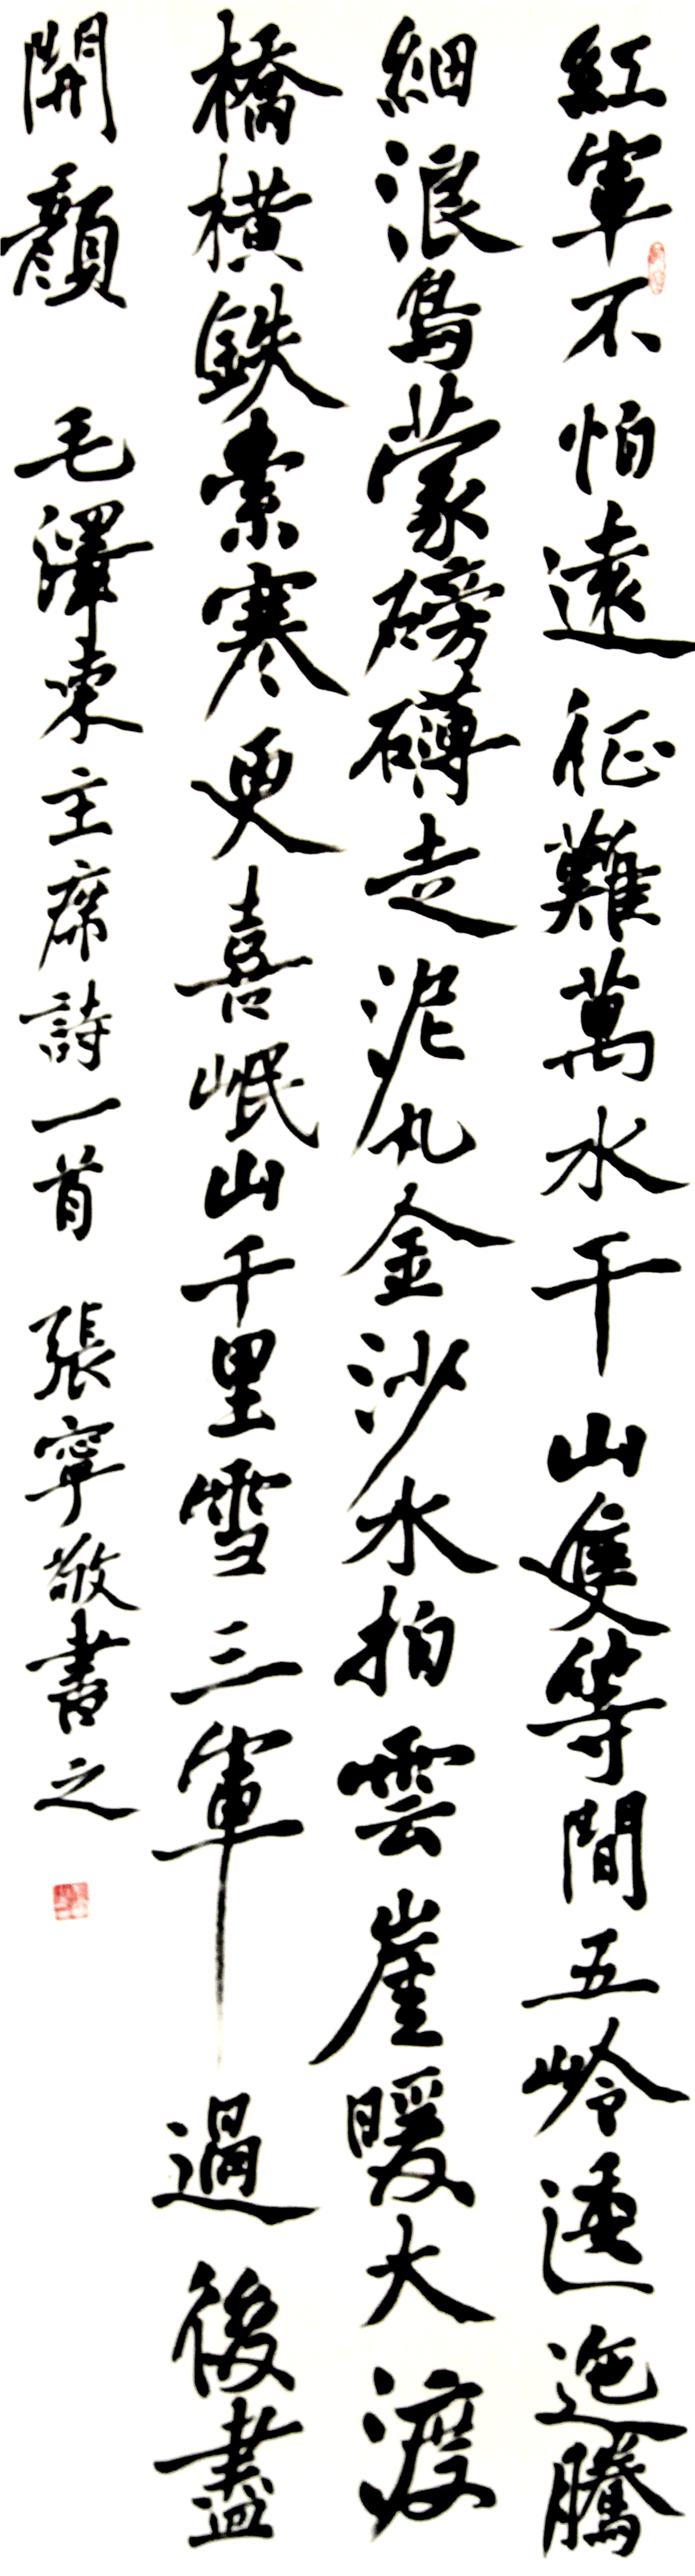 紅軍不怕遠征難萬水千山隻等間五岭逶迤騰
細浪烏蒙磅礴走泥丸金沙水拍雲崖暖大渡
橋橫鉄索寒更喜岷山千里雪三軍過後盡
開顏 毛澤東主席詩一首 張寧敬書之